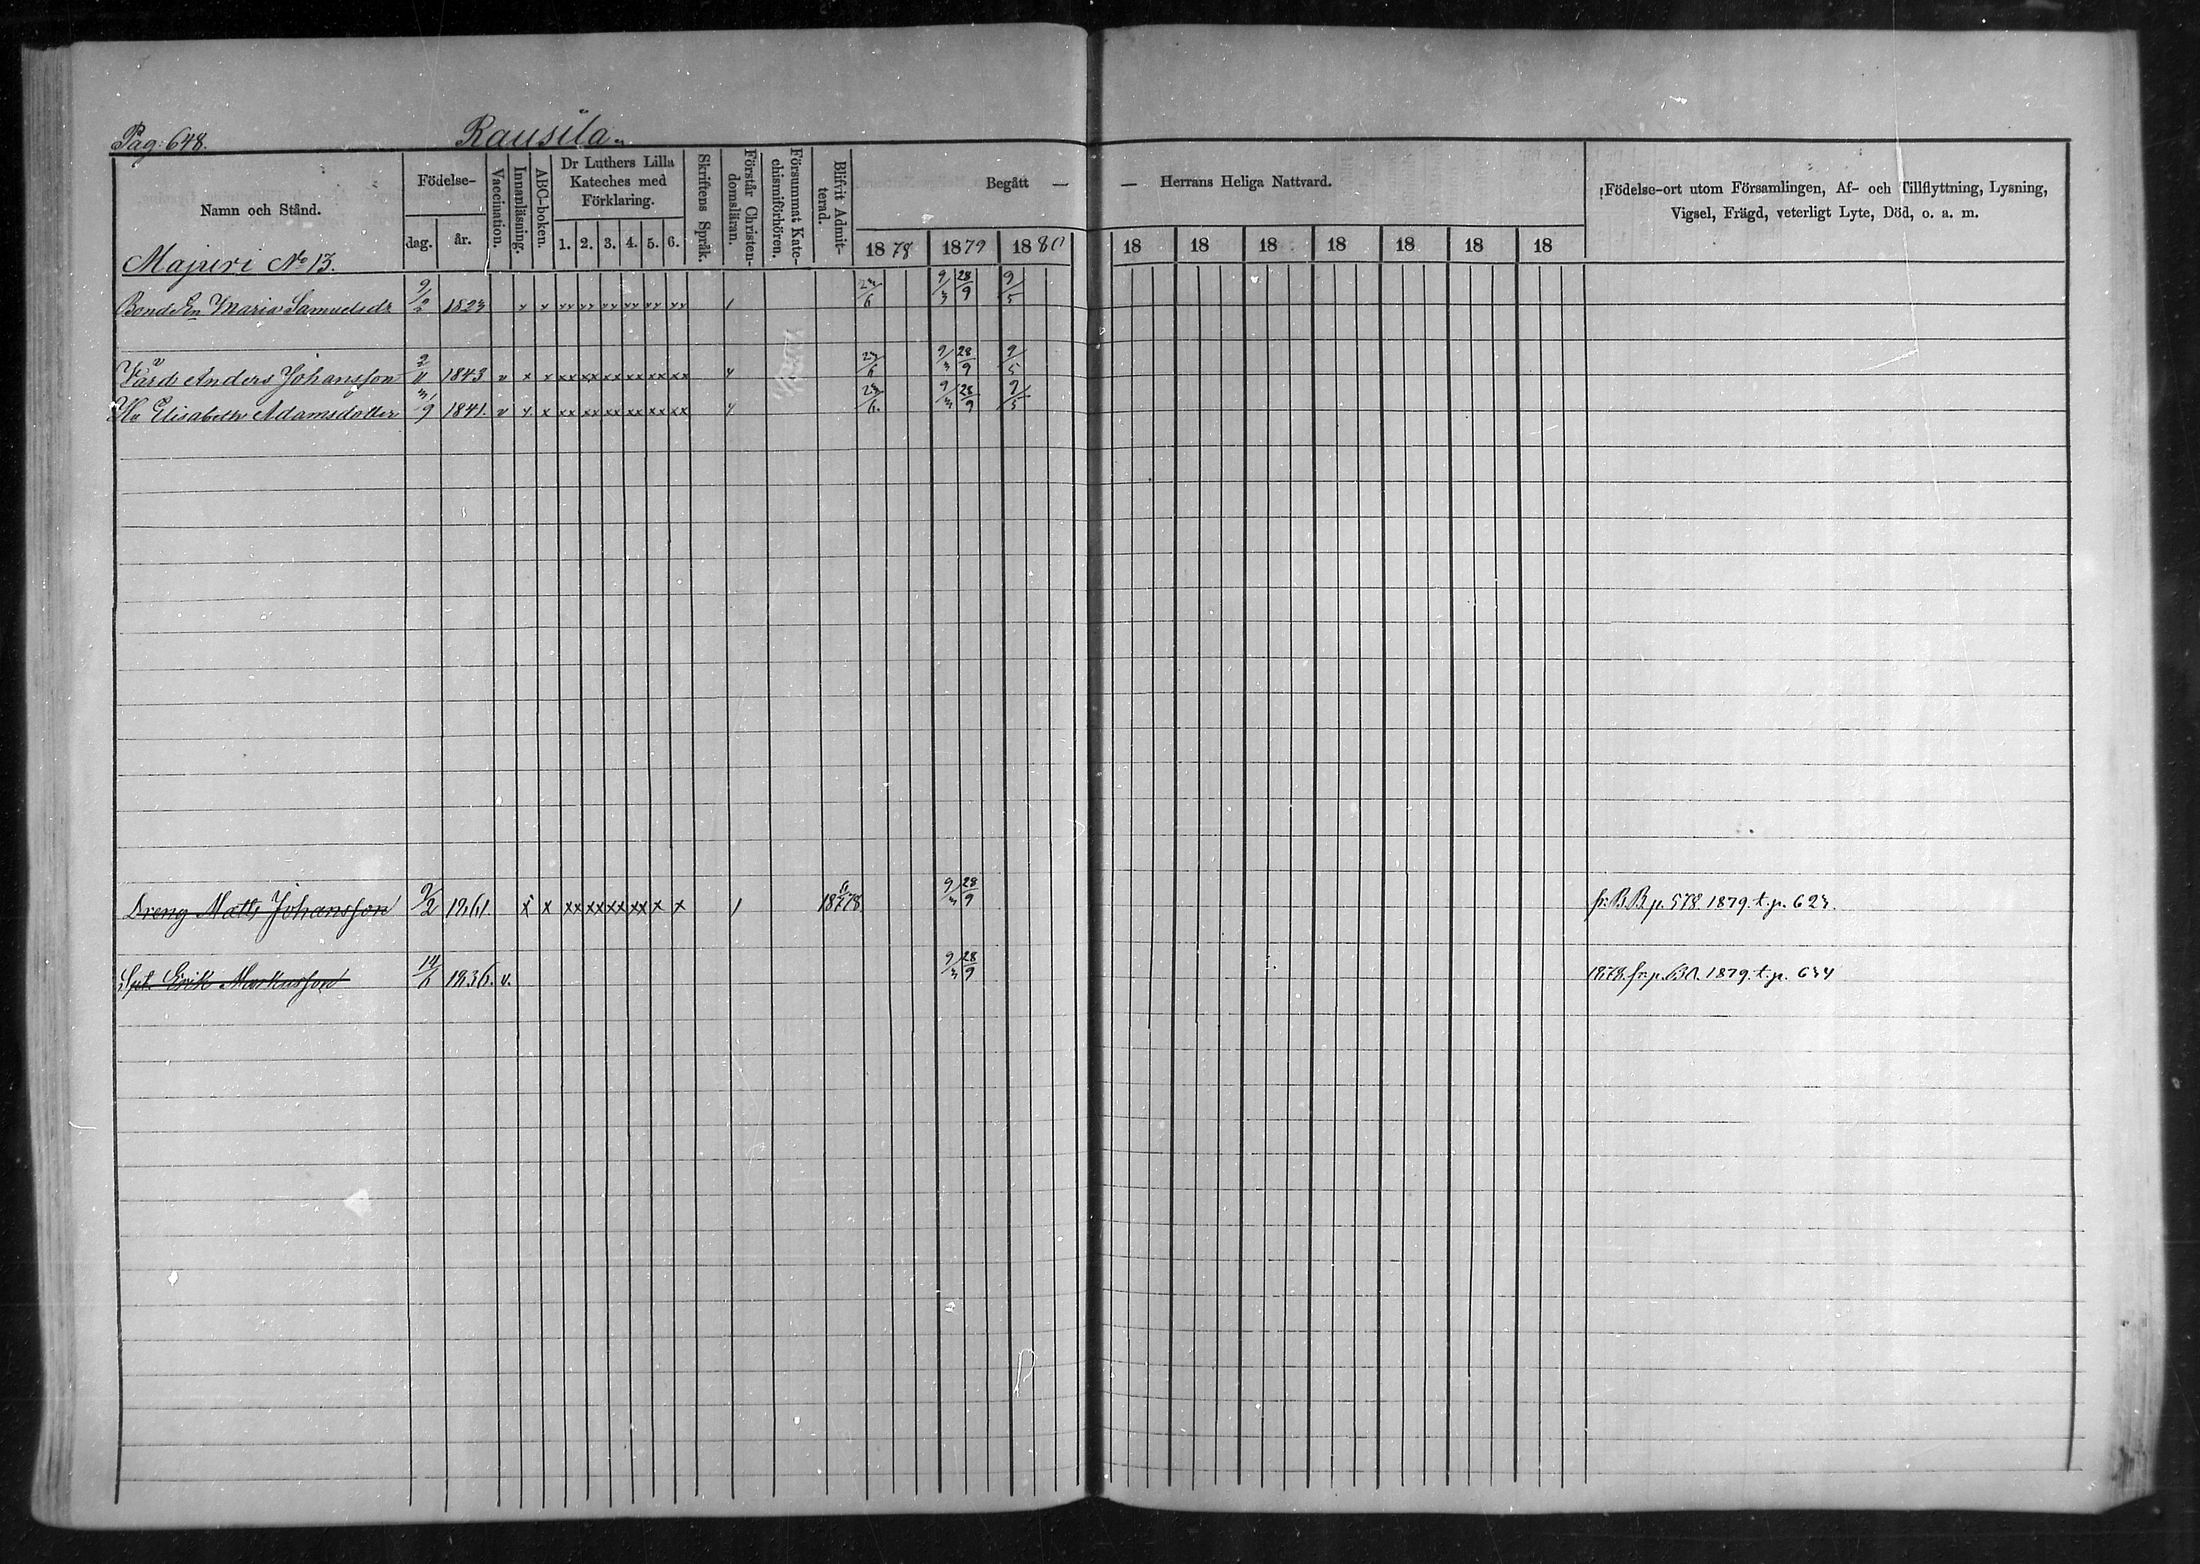 Pag: 648. Rausila.
Namn och Stånd. Födelse- dag. år. Vaccination. Innanläsning. ABC-boken. Dr Luthers Lilla Kateches med Förklaring. 1. 2. 3. 4. 5. 6. Skriftens Språk. Förstår Christen-domsläran. Försummat Kate-chismiförhören. Blifvit Admit-terad. Begått — — Herrans Heliga Nattvard. Födelse-ort utom Församlingen, Af- och Tillflyttning, Lysning, Vigsel, Frägd, veterligt Lyte, Död, o. a. m.
1878 1879 1880 18 18 18 18 18 18 18
Majuri No 13.
Bonde Maria Samuelsdr 1823 v v vv vv vv vv vv vv 1 9/3 28/9 9/5
Anders Johansson 2/11 1843 v x v xx xx xx xx xx xx 9/3 28/9 9/5
Elisabeth Adamsdotter 1841. v x x xx xx xx xx xx xx 9/3 28/9 9/5
Dreng Matts Johansson 9/2 1861 x x xx xx xx xx x x 1 1878 9/3 28/9 fr. BB p. 578. 1879. t. p. 623.
Erik Markusson 1836. v. 9/3 28/9 1878. fr. p. 630. 1879. t. p. 634